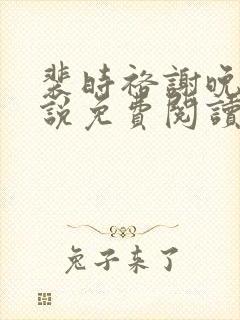 裴時裕謝晚
說免費閱讀
兔子来了